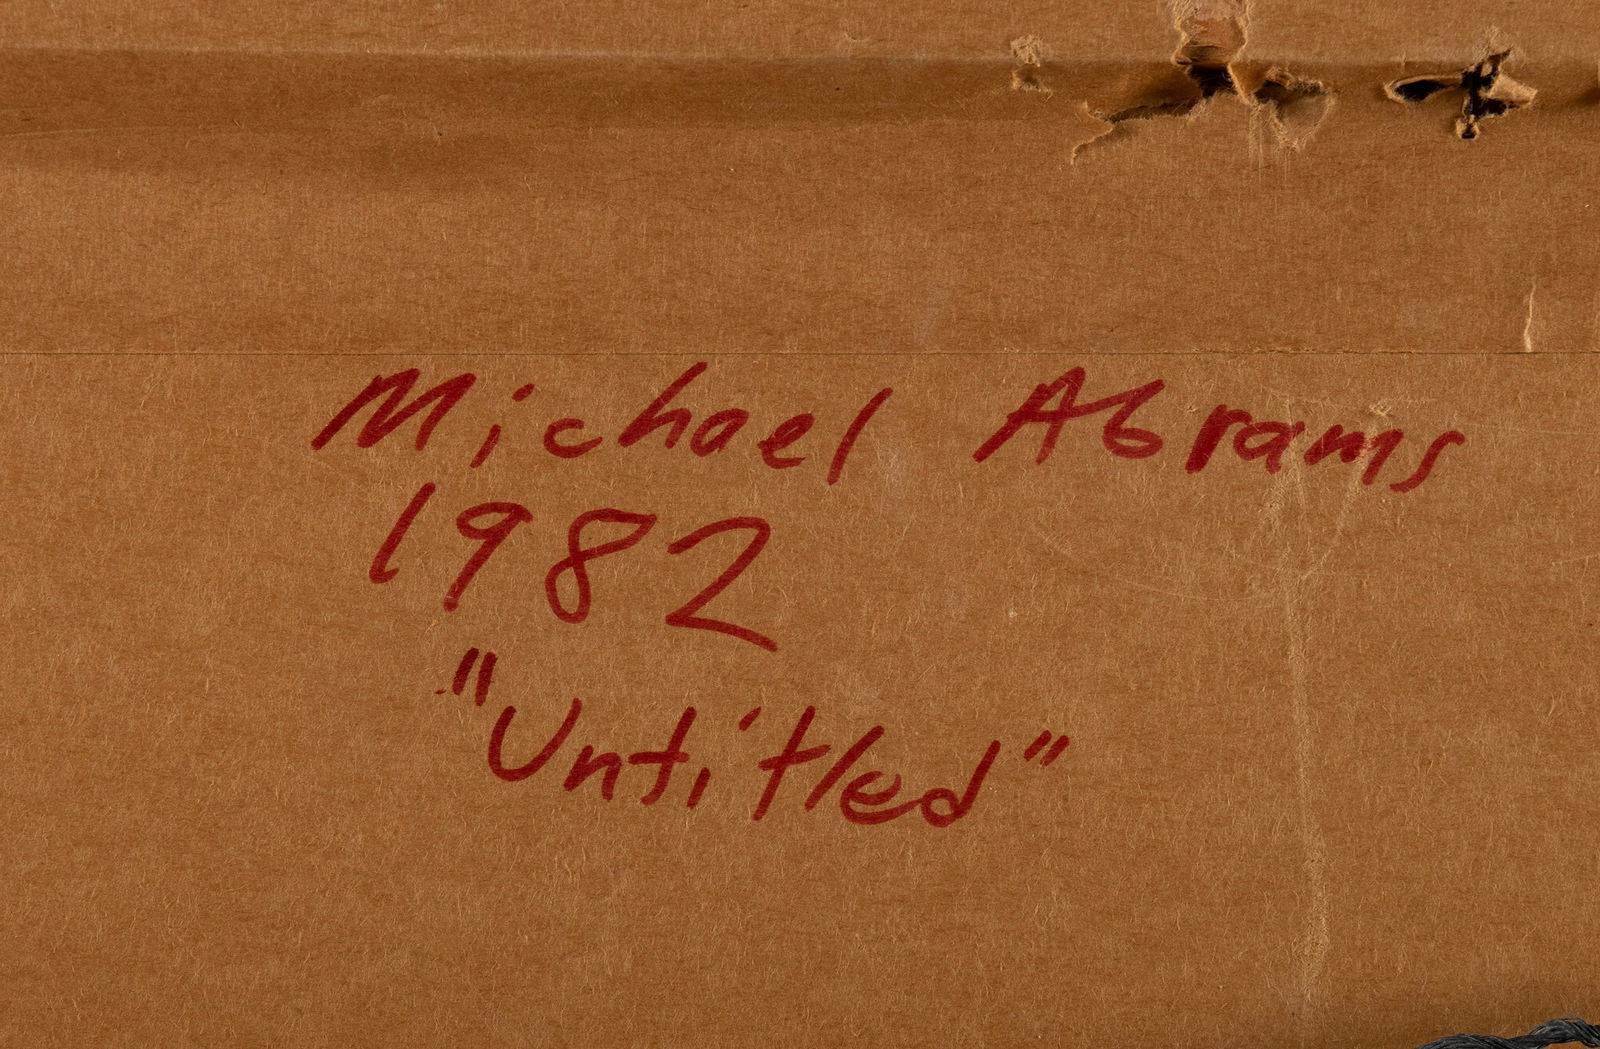 Michael Abrams
1982
"Untitled"